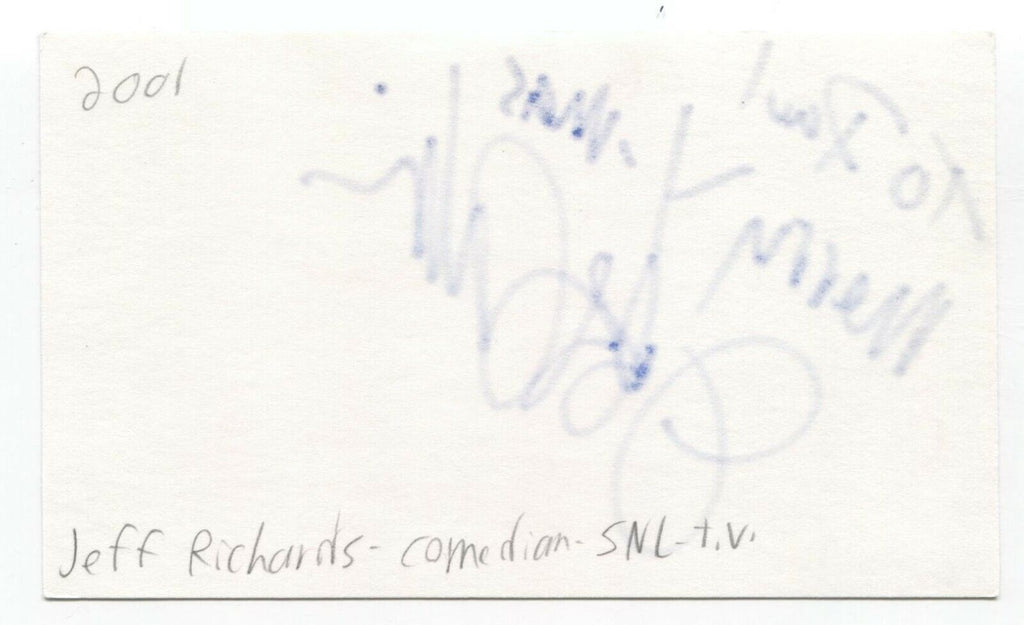 2001
To Paul
Merry
X-mas
Jeff Richards - comedian - SNL - t.v.